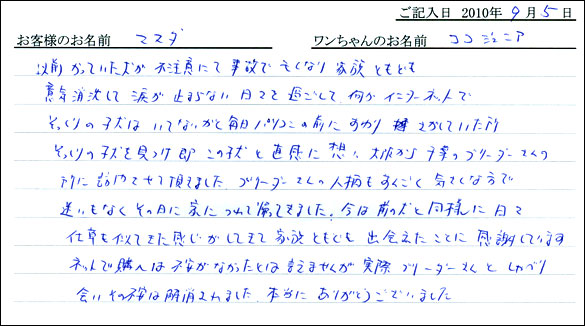 ご記入日 2010年9月5日
お客様のお名前 マスダ ワンちゃんのお名前 ココジュニア
以前かっていた犬が不注意にて事故で亡くなり家族ともども
意気消沈して涙が止まらない日々を過ごして何かインターネットで
そっくりの子犬はいてないかと毎日パソコンの前にすわりさがしていた所
そっくりの子犬を見つけ即この子犬と直感に想い大阪から千葉のブリーダーさんの
所に訪問させて頂きました。ブリーダーさんの人柄もすんごく気さくな方で
迷いもなくその日に家につれて帰ってきました。今は前の犬と同様に日々
仕草も似てきた感じがしてきて家族ともども出会えたことに感謝しています
ネットで購入は不安がなかったとは言えませんが実際ブリーダーさんとしゃべり
会いその不安は解消されました。本当にありがとうございました